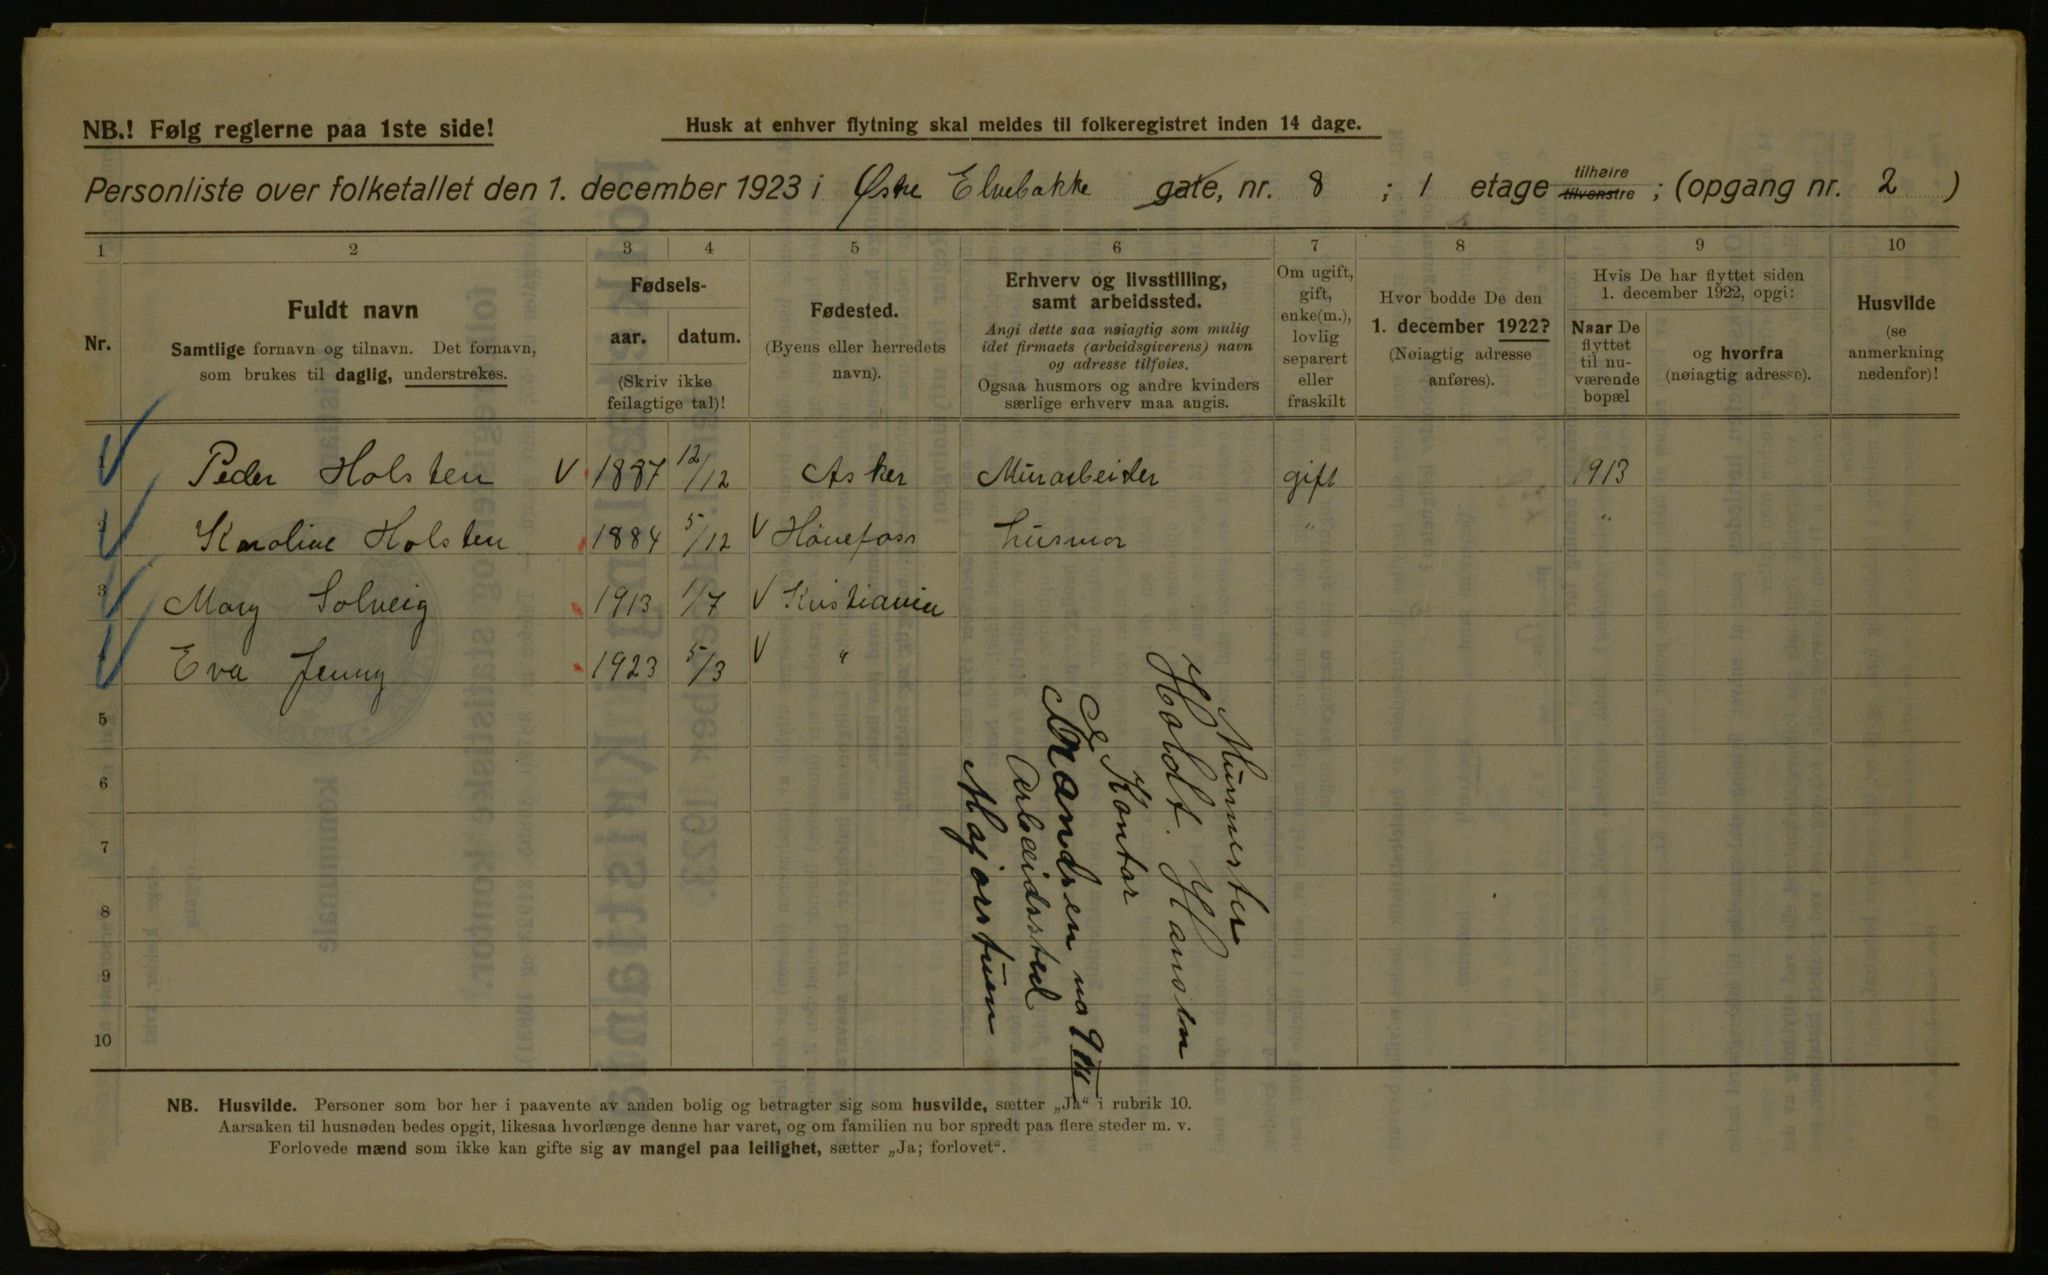 NB.! Følg reglerne paa 1ste side!
Husk at enhver flytning skal meldes til folkeregistret inden 14 dage.
Personliste over folketallet den 1. december 1923 i Østre Elvebakke gate, nr. 8 ; 1 etage tilhøire tilvenstre ; (opgang nr. 2 )
1 2 3 4 5 6 7 8 9 10
Nr.
Fuldt navn
Samtlige fornavn og tilnavn. Det fornavn,
som brukes til daglig, understrekes.
Fødsels-
aar. datum.
(Skriv ikke
feilagtige tal)!
Fødested.
(Byens eller herredets
navn).
Erhverv og livsstilling,
samt arbeidssted.
Angi dette saa nøiagtig som mulig
idet firmaets (arbeidsgiverens) navn
og adresse tilføies.
Ogsaa husmors og andre kvinders
særlige erhverv maa angis.
Om ugift,
gift,
enke(m.),
lovlig
separert
eller
fraskilt
Hvor bodde De den
1. december 1922?
(Nøiagtig adresse
anføres).
Hvis De har flyttet siden
1. december 1922, opgi:
Naar De
flyttet
til nu-
værende
bopæl
og hvorfra
(nøiagtig adresse).
Husvilde
(se
anmerkning
nedenfor)!
1 Peder Holsten V 1887 12/12 Asker Murarbeider gift 1913
2 Karoline Holsten 1884 5/12 V Hønefoss husmor " "
3 Mary Solveig 1913 1/7 V Kristiania
4 Eva Jenny 1923 5/3 V "
5
6
7
8
9
10
Murmester
Holdt. Hansen
Kontor
Arbeidssted
Majorstuen
NB. Husvilde. Personer som bor her i paavente av anden bolig og betragter sig som husvilde, sætter „Ja“ i rubrik 10.
Aarsaken til husnøden bedes opgit, likesaa hvorlænge denne har varet, og om familien nu bor spredt paa flere steder m. v.
Forlovede mænd som ikke kan gifte sig av mangel paa leilighet, sætter „Ja; forlovet“.